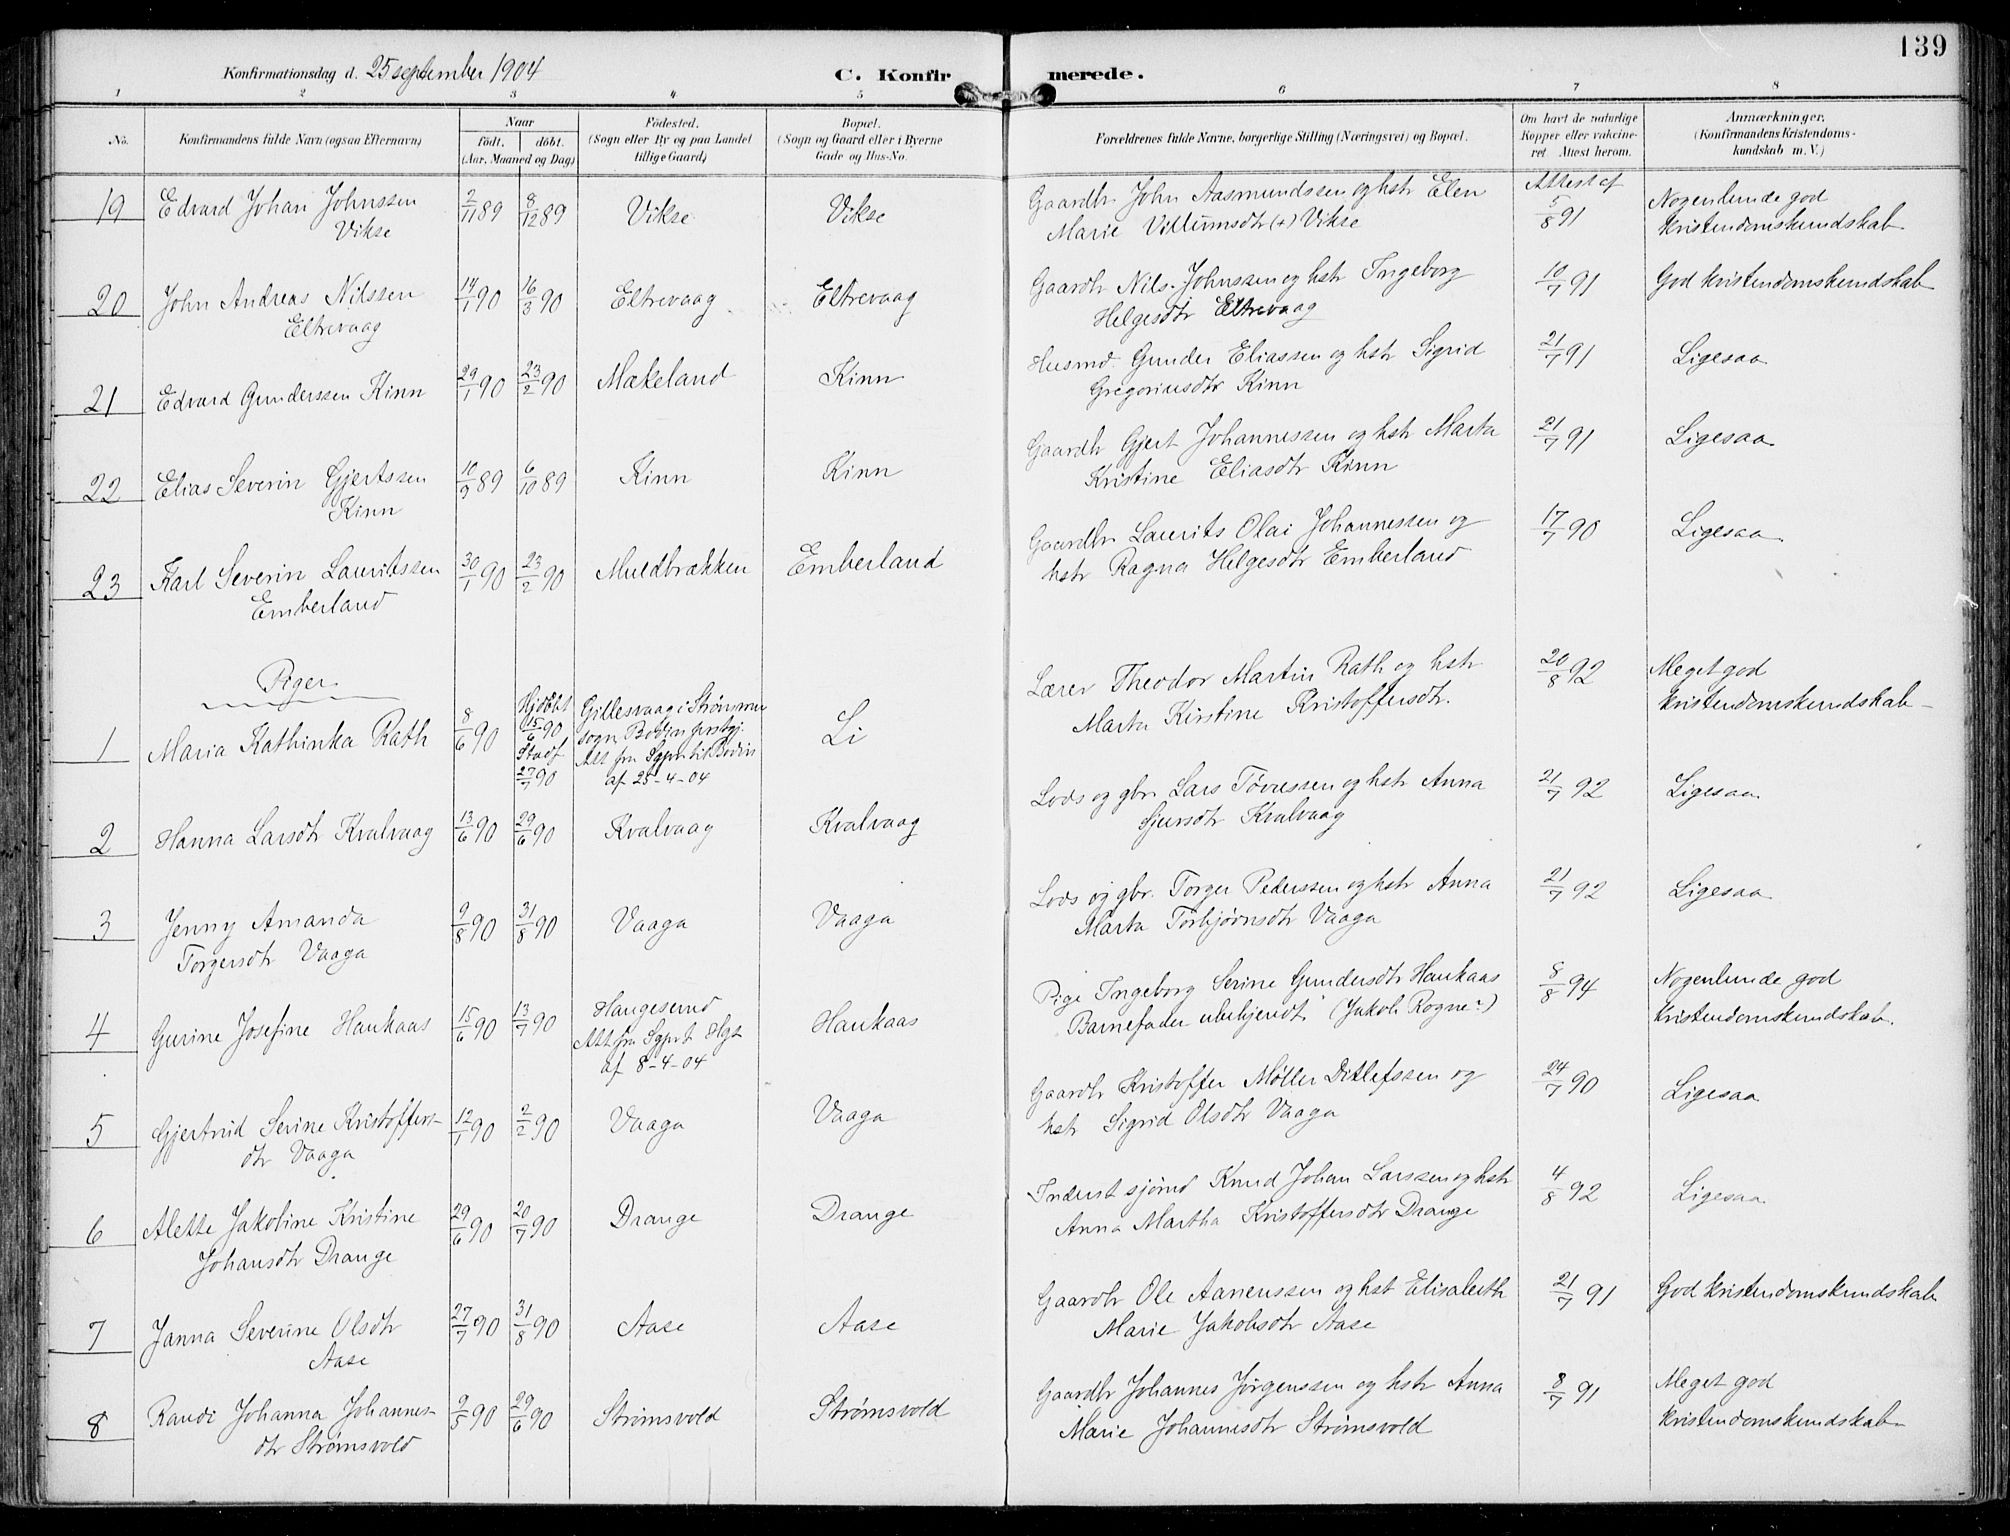 139
Konfirmationsdag d. 25 september 1904
C. Konfir merede.
1 2 3 4 5 6 7 8
No.
Konfirmandens fulde Navn (ogsaa Efternavn)
Naar
födt. döbt.
(Aar, Maaned og Dag)
Födested.
(Sogn eller By og paa Landet
tillige Gaard)
Bopæl.
(Sogn og Gaard eller i Byerne
Gade og Hus-No.
Forældrenes fulde Navne, borgerlige Stilling (Næringsvei) og Bopæl.
Om havt de naturlige
Kopper eller vakcine-
ret. Attest herom.
Anmærkninger.
(Konfirmandens Kristendoms-
kundskab m. V.)
19 Edvard Johan Johnssen 2/11 89 8/12 89 Vikse Vikse Gaardbr John Aasmundssen og hstr Elen Attest af Nogenlunde god
Vikse Marie Villumsdtr (+) Vikse 5/8 91 kristendomskundskab
20 John Andreas Nilssen 14/1 90 16/3 90 Eltrevaag Eltrevaag Gaardbr Nils Johnssen og hstr Ingeborg 10/7 91 God kristendomskundskab
Eltrevaag Helgesdtr Eltrevaag
21 Edvard Gunderssen Kinn 29/1 90 23/2 90 Mækeland Kinn Husmd. Gunder Eliassen og hstr Sigrid 21/7 91 Ligesaa
Gregoriusdtr Kinn
22 Elias Severin Gjertssen 10/9 89 6/10 89 Kinn Kinn Gaardbr Gjert Johannessen og hstr Marta 21/7 91 Ligesaa
Kinn Kristine Eliasdtr Kinn
23 Karl Severin Lauritssen 30/1 90 23/2 90 Muldbrækken Emberland Gaardbr Laurits Olai Johannessen og 17/7 90 Ligesaa
Emberland hstr Ragna Helgesdtr Emberland
Piger
1 Maria Kathinka Rath 8/6 90 Hjdöbt 15/6 90 Stadf 27/7 90 Gillesvaag i Strømmen
sogn, Bodin prstgj.
Att fra Sgpr til Bodin
af 25-4-04
Li Lærer Theodor Martin Rath og hstr 20/8 92 Meget god
Marta Kirstine Kristoffersdtr. kristendomskundskab
2 Hanna Larsdtr Kvalvaag 13/6 90 29/6 90 Kvalvaag Kvalvaag Lods og gbr. Lars Tövessen og hstr Anna 21/7 92 Ligesaa
Sjursdtr Kvalvaag
3 Jenny Amanda 9/8 90 31/8 90 Vaaga Vaaga Lods og gbr. Torger Pederssen og hstr Anna 21/7 92 Ligesaa
Torgersdtr Vaaga Marta Torbjörnsdtr Vaaga
4 Gurine Josefine Haukaas 15/6 90 13/7 90 Haugesund
Att fra Sgprt Hgs
af 8-4-04
Haukaas Pige Ingeborg Serine Gundersdtr Haukaas 8/8 94 Nogenlunde god
Barnefader ubekjendt (Jakob Rogne?) kristendomskundskab.
5 Gjertrud Serine Kristoffers- 12/1 90 2/2 90 Vaaga Vaaga Gaardbr Kristoffer Møller Ditlefssen og 24/7 90 Ligesaa
dtr Vaaga hstr Sigrid Olsdtr Vaaga
6 Alette Jakobine Kristine 29/6 90 20/7 90 Drange Drange Inderst sjömd Knud Johan Larssen og hstr 4/8 92 Ligesaa
Johansdtr Drange Anna Martha Kristoffersdtr Drange
7 Janna Severine Olsdtr 27/7 90 31/8 90 Aase Aase Gaardbr Ole Aanenssen og hst Elisabeth 21/7 91 God kristendomskundskab
Aase Marie Jakobsdtr Aase
8 Randi Johanna Johannes- 9/5 90 29/6 90 Strømsvold Strømsvold Gaardbr Johannes Jørgenssen og hstr Anna 8/7 91 Meget god
dtr Strømsvold Marie Johannesdtr Strømsvold kristendomskundskab